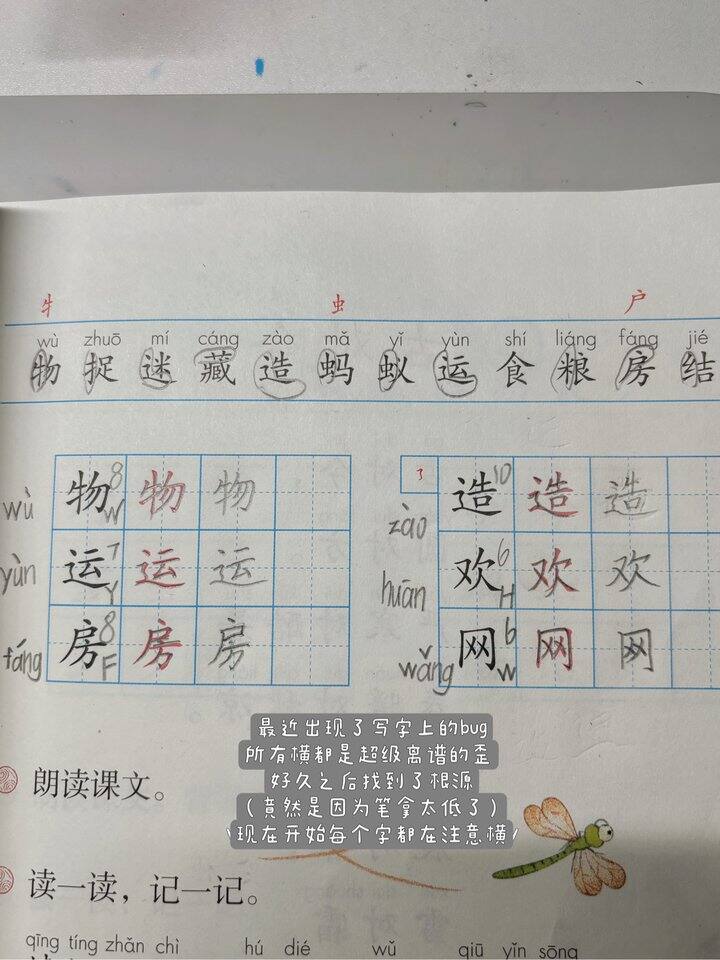 牜 虫 户
wù zhuō mí cáng zào mǎ yǐ yùn shí liáng fáng jié
物 捉 迷 藏 造 蚂 蚁 运 食 粮 房 结
wù 物 8 W 物 物
yùn 运 7 Y 运 运
fáng 房 8 F 房 房
了
zào 造 10 造 造
huān 欢 6 H 欢 欢
wǎng 网 6 W 网 网
最近出现了写字上的bug
所有横都是超级离谱的歪
好久之后找到了根源
(竟然是因为笔拿太低了)
现在开始每个字都在注意横
朗读课文。
读一读，记一记。
qīng tíng zhǎn chì hú dié wǔ qiū yǐn sōng